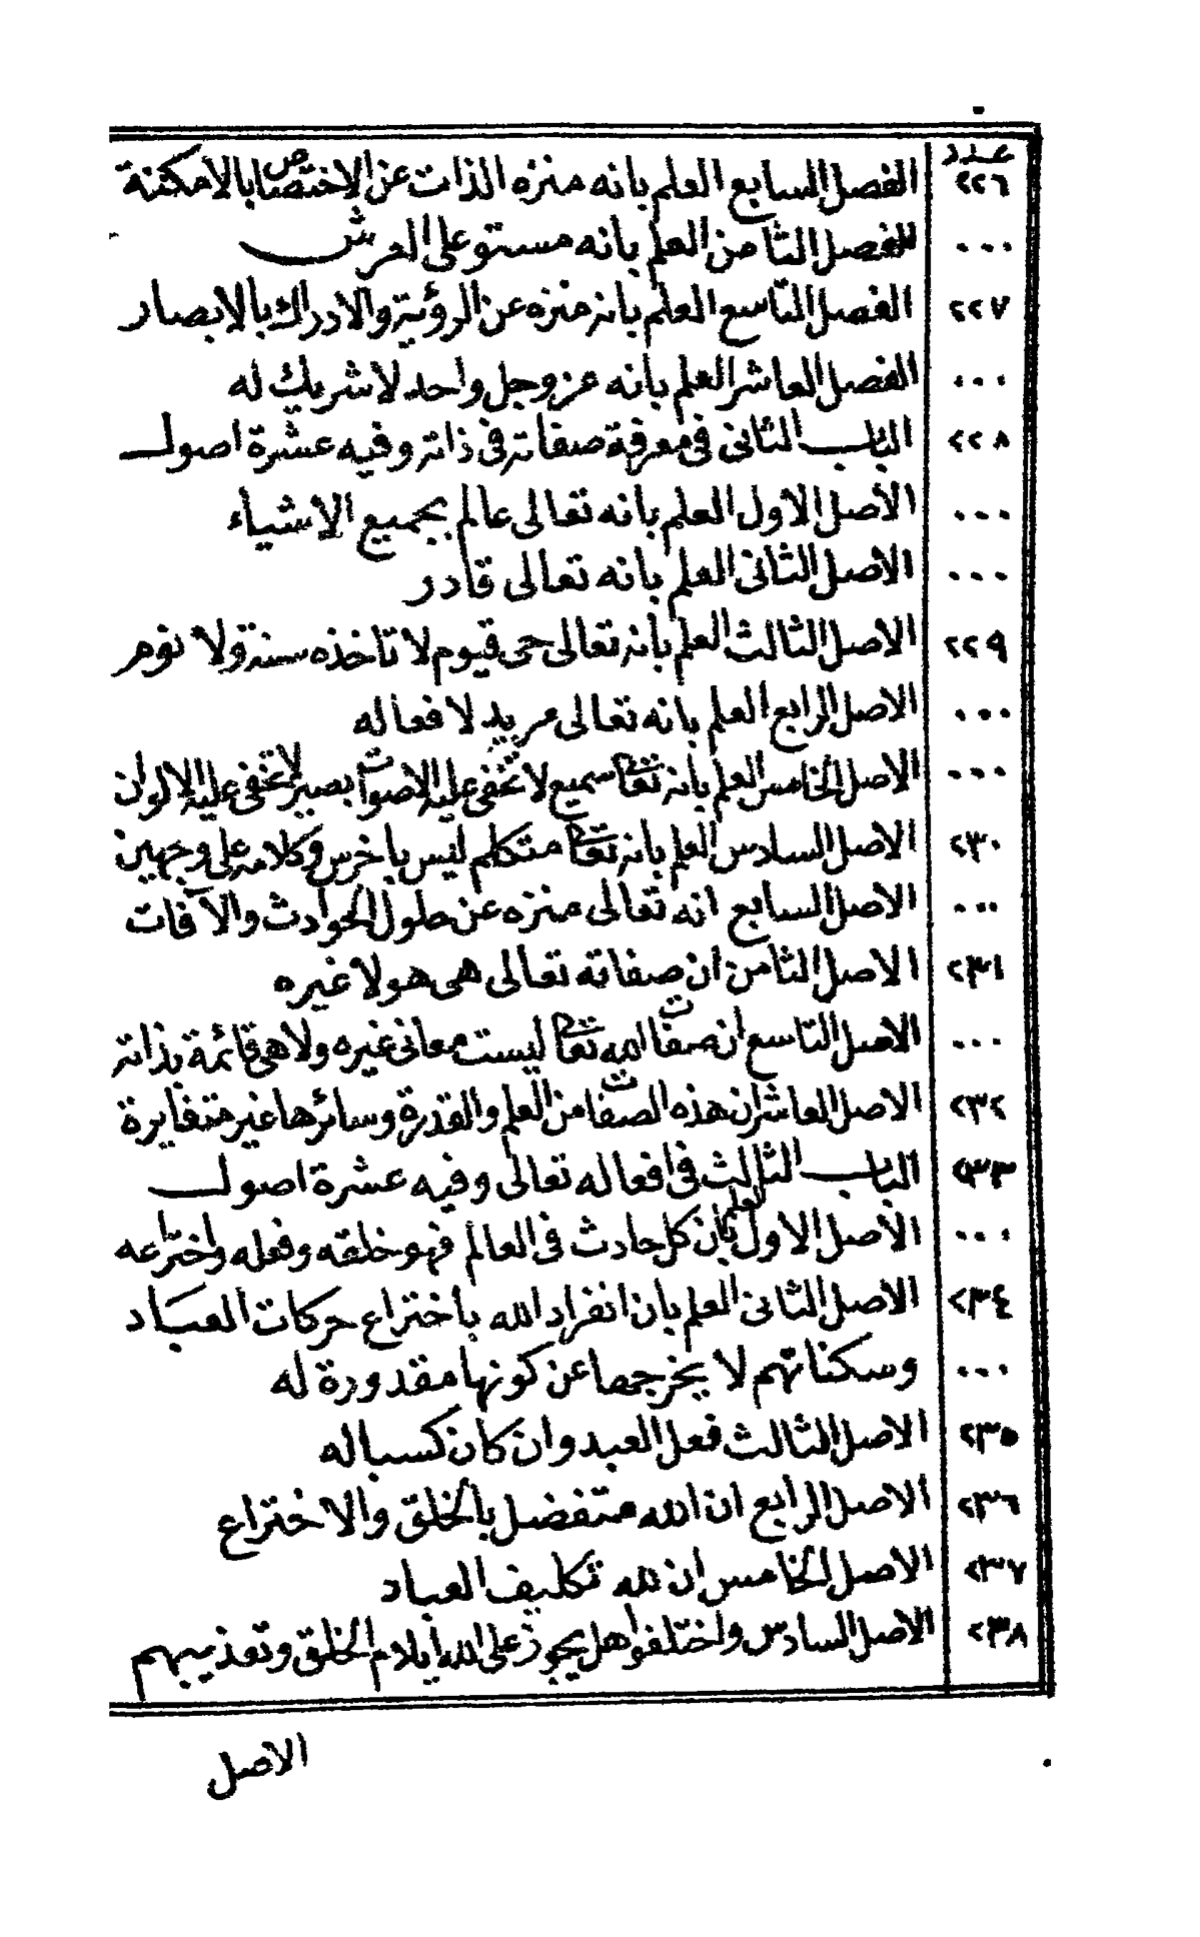 عدد
٢٢٦ الفصل السابع العلم بانه منزه الذات عن الاختصاص بالامكنة
... الفصل الثامن العلم بانه مستو على العرش
٢٢٧ الفصل التاسع العلم بانه منزه عن الرؤية والادراك بالابصار
... الفصل العاشر العلم بانه عز وجل واحد لا شريك له
٢٢٨ الباب الثانى فى معرفة صفاته فى ذاته وفيه عشرة اصول
... الاصل الاول العلم بانه تعالى عالم بجميع الاشياء
... الاصل الثانى العلم بانه تعالى قادر
٢٢٩ الاصل الثالث العلم بانه تعالى حى قيوم لا تاخذه سنة ولا نوم
... الاصل الرابع العلم بانه تعالى مريد لافعاله
... الاصل الخامس العلم بانه تعا سميع لا تخفى عليه الاصوات بصير لا تخفى عليه الالوان
٢٣٠ الاصل السادس العلم بانه تعا متكلم ليس باخرس وكلامه على وجهين
... الاصل السابع انه تعالى منزه عن حلول الحوادث والآفات
٢٣١ الاصل الثامن ان صفاته تعالى هى هو لا غيره
... الاصل التاسع ان صفات الله تعا ليست معانى غيره ولا هى قائمة بذاته
٢٣٢ الاصل العاشر ان هذه الصفات من العلم والقدرة وسائرها غير متغايرة
٢٣٣ الباب الثالث فى افعاله تعالى وفيه عشرة اصول
... الاصل الاول العلم بان كل حادث فى العالم فهو خلقه وفعله واختراعه
٢٣٤ الاصل الثانى العلم بان انفراد الله باختراع حركات العباد
... وسكناتهم لا يخرجها عن كونها مقدورة له
٢٣٥ الاصل الثالث فعل العبد وان كان كسبا له
٢٣٦ الاصل الرابع ان الله متفضل بالخلق والاختراع
٢٣٧ الاصل الخامس ان لله تكليف العباد
٢٣٨ الاصل السادس واختلفوا هل يجوز على الله ايلام الخلق وتعذيبهم
الاصل